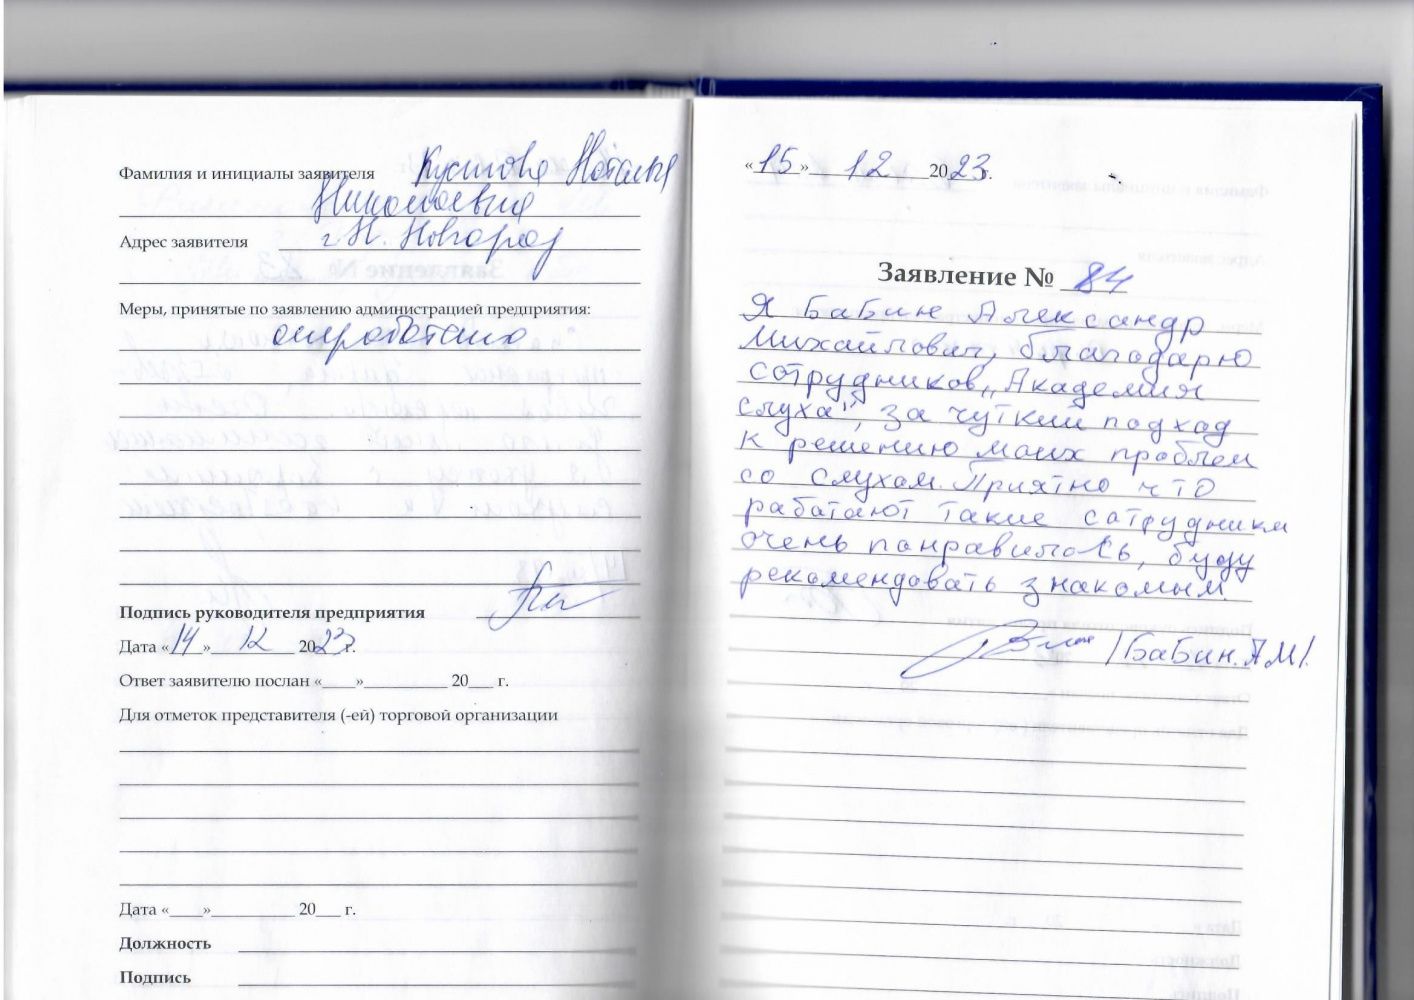 Фамилия и инициалы заявителя Кустова Наталья
Николаевна
Адрес заявителя г. Н. Новгород
Меры, принятые по заявлению администрацией предприятия:
отработано
Подпись руководителя предприятия
Дата «14» 12 2023г.
Ответ заявителю послан «____»__________ 20___ г.
Для отметок представителя (-ей) торговой организации
Дата «____»__________ 20___ г.
Должность
Подпись
«15» 12 2023г.
Заявление № 84
Я Бабин Александр
Михайлович, благодарю
сотрудников „Академия
слуха", за чуткий подход
к решению моих проблем
со слухом. Приятно что
работают такие сотрудники
очень понравилось, буду
рекомендовать знакомым.
/Бабин.А.М/.